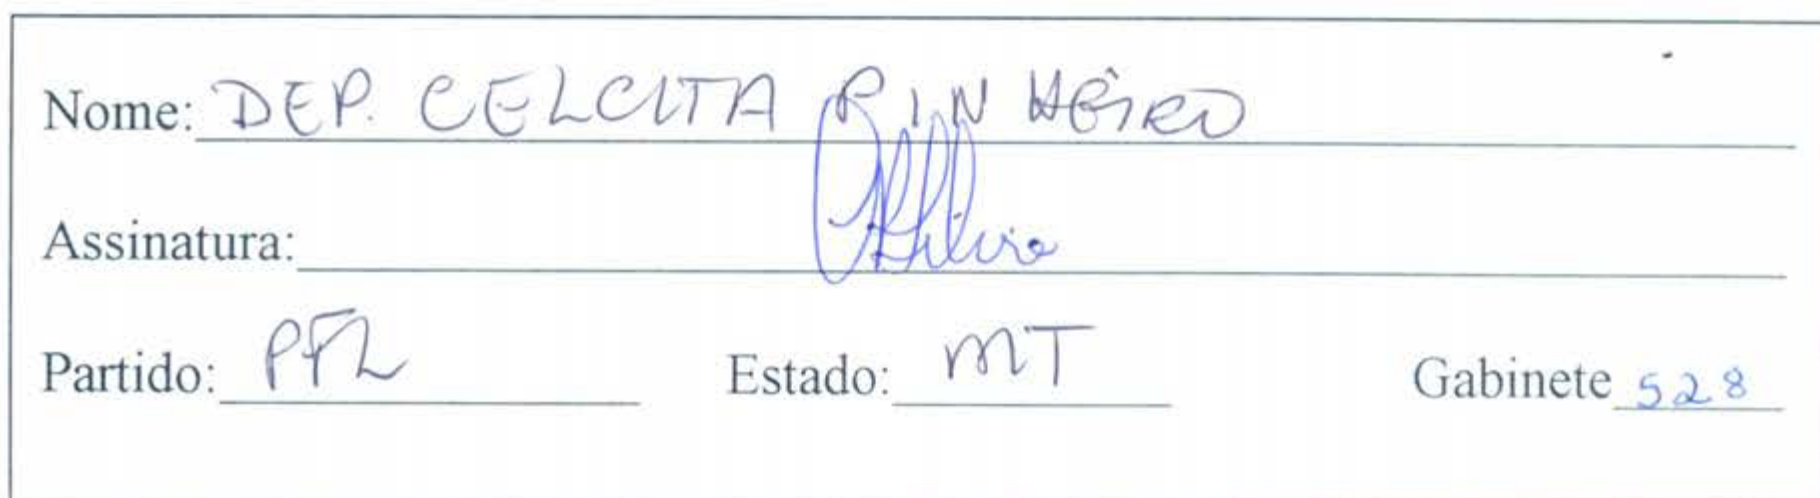 Nome: DEP. CELCITA PINHEIRO
Assinatura:
Partido: PFL Estado: MT Gabinete 528